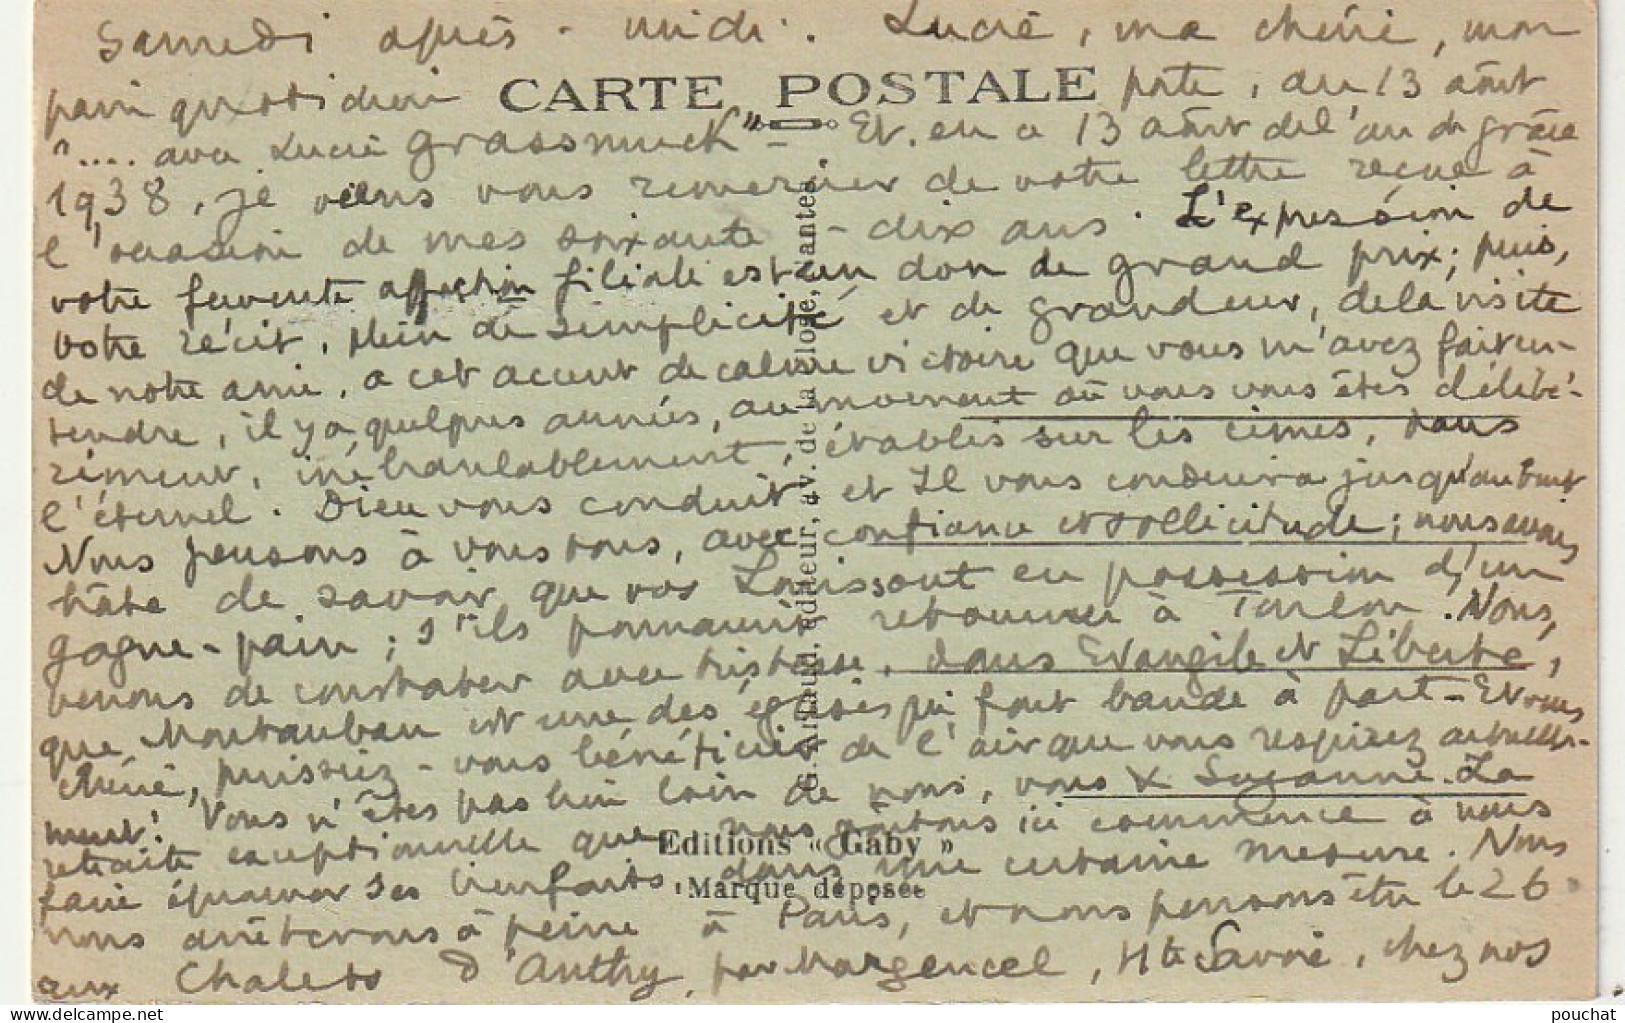 Samedi après-midi. Lucie, ma chérie, mon
pain quotidien CARTE POSTALE porte, au 13 août
".... avec Lucie Grassmuck" - Et, en ce 13 août de l'an de grâce
1938, je viens vous remercier de votre lettre reçue à
l'occasion de mes soixante-dix ans. L'expression de
votre fervente affection filiale est un don de grand prix; puis,
votre récit, plein de simplicité et de grandeur, de la visite
de notre amie, a cet accent de calme victoire que vous m'avez fait en-
tendre, il y a quelques années, au moment où vous vous êtes délibé-
rément, inébranlablement, établis sur les cimes, dans
l'éternel. Dieu vous conduit, et Il vous conduira jusqu'au bout
Nous pensons à vous tous, avec confiance et sollicitude; nous avons
hâte de savoir que vos Louis sont en possession d'un
gagne-pain; s'ils pouvaient retourner à Toulon. Nous,
venons de constater avec tristesse, dans Evangile et Liberté,
que Montauban est une des églises qui font bande à part - Et vous
chérie, puissiez-vous bénéficier de l'air que vous respirez actuelle-
ment! Vous n'êtes pas bien loin de nous, vous & Suzanne. La
retraite exceptionnelle que nous goûtons ici commence à nous
faire éprouver ses bienfaits, dans une certaine mesure. Nous
nous arrêterons à peine à Paris, et nous pensons être le 26
aux Chalets d'Anthy, par Margencel, Hte Savoie, chez nos
G. Artaud, éditeur, av. de la Close, Nantes
Editions « Gaby »
Marque déposée
pouchat
delcampe.net